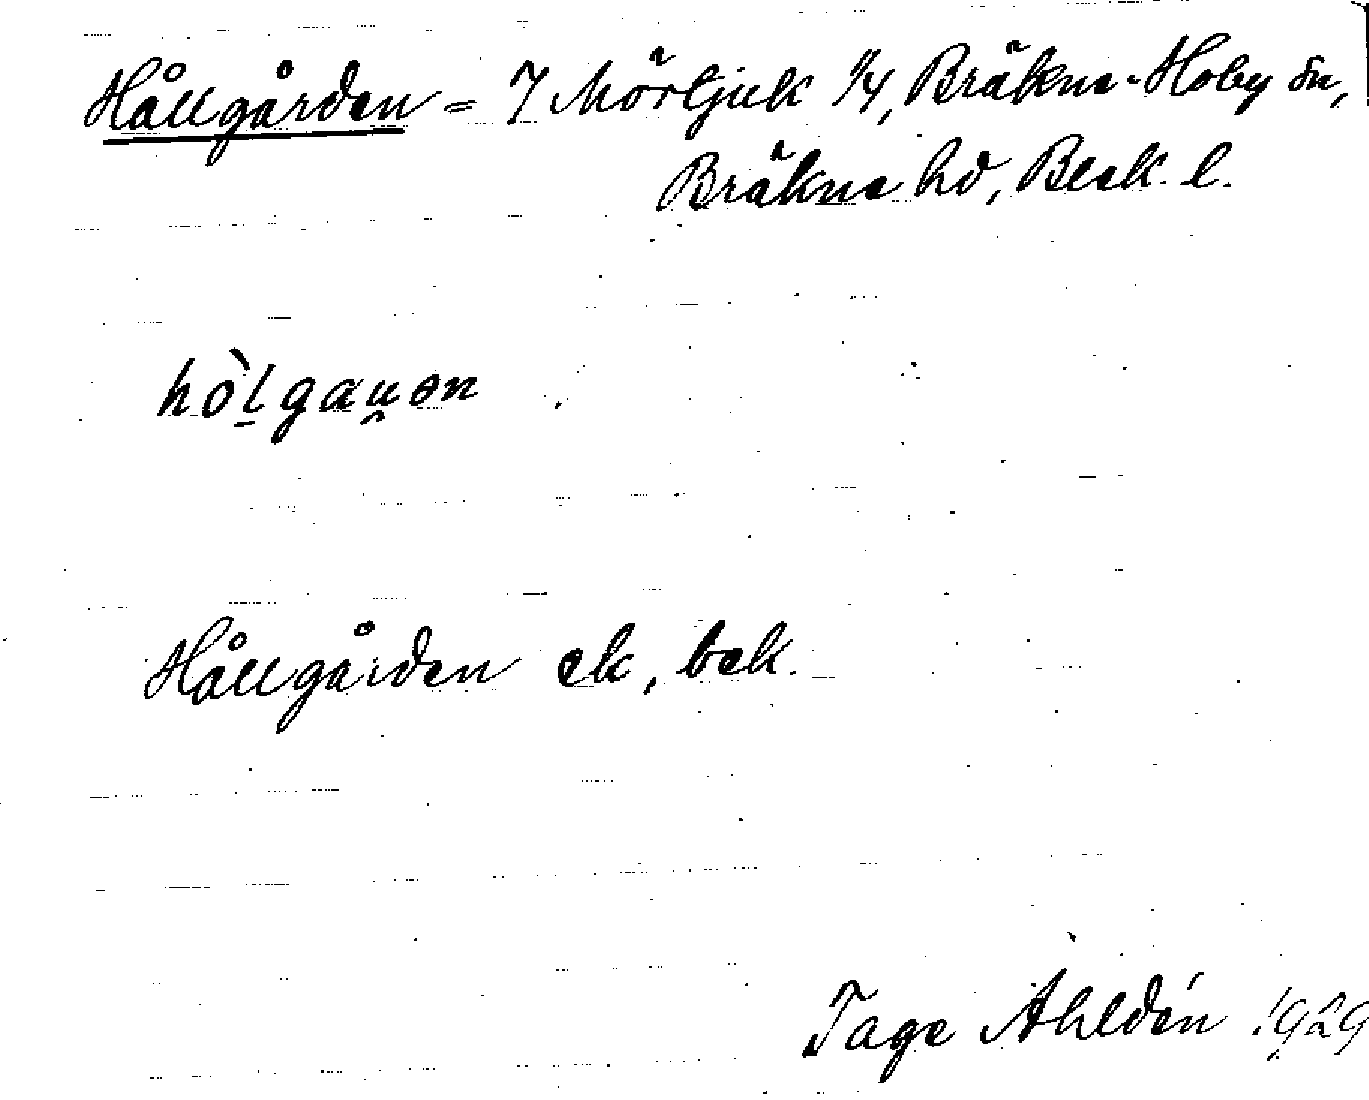 Hållgården = 7 Mörtjuk 1/4, Bräkne-Hoby sn,
Bräkne hd, Blek. l.
hòl̠gau̯ən
Hållgården ek, bek.
Tage Ahldén 1929